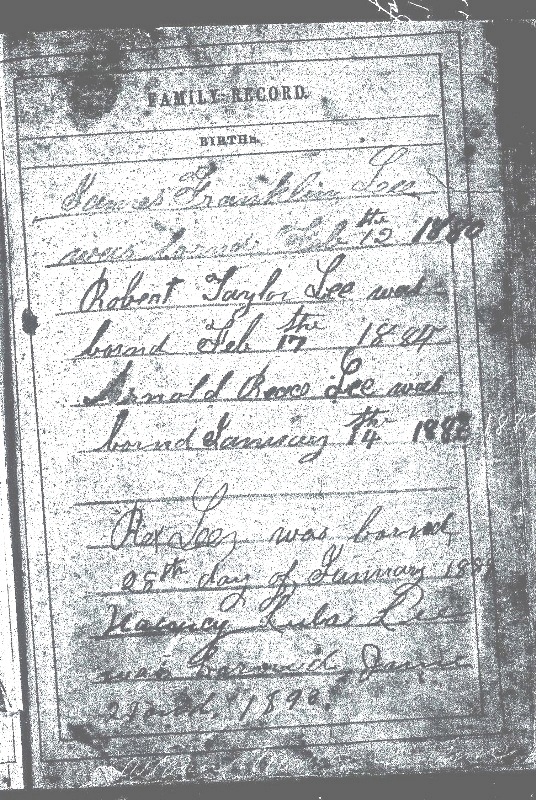 FAMILY RECORD.
BIRTHS.
James Franklin Lee
was bornd Feb 12 the 1880
Robert Taylor Lee was
bornd Feb 17 the 1884
Arnold Lee was
bornd January 14 th
Rex Lee was bornd
28th day of January
Lee
was bornd June
1890.